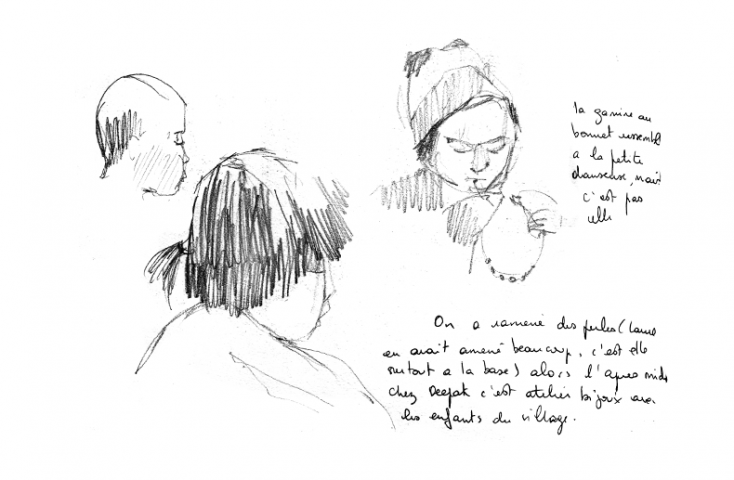 la gamine au
bonnet ressemble
a la petite
danseuse, mais
c'est pas
elle
On a ramené des perles (Laure
en avait amené beaucoup, c'est elle
surtout a la base) alors l'apres midi
chez Deepak c'est atelier bijoux avec
les enfants du village.